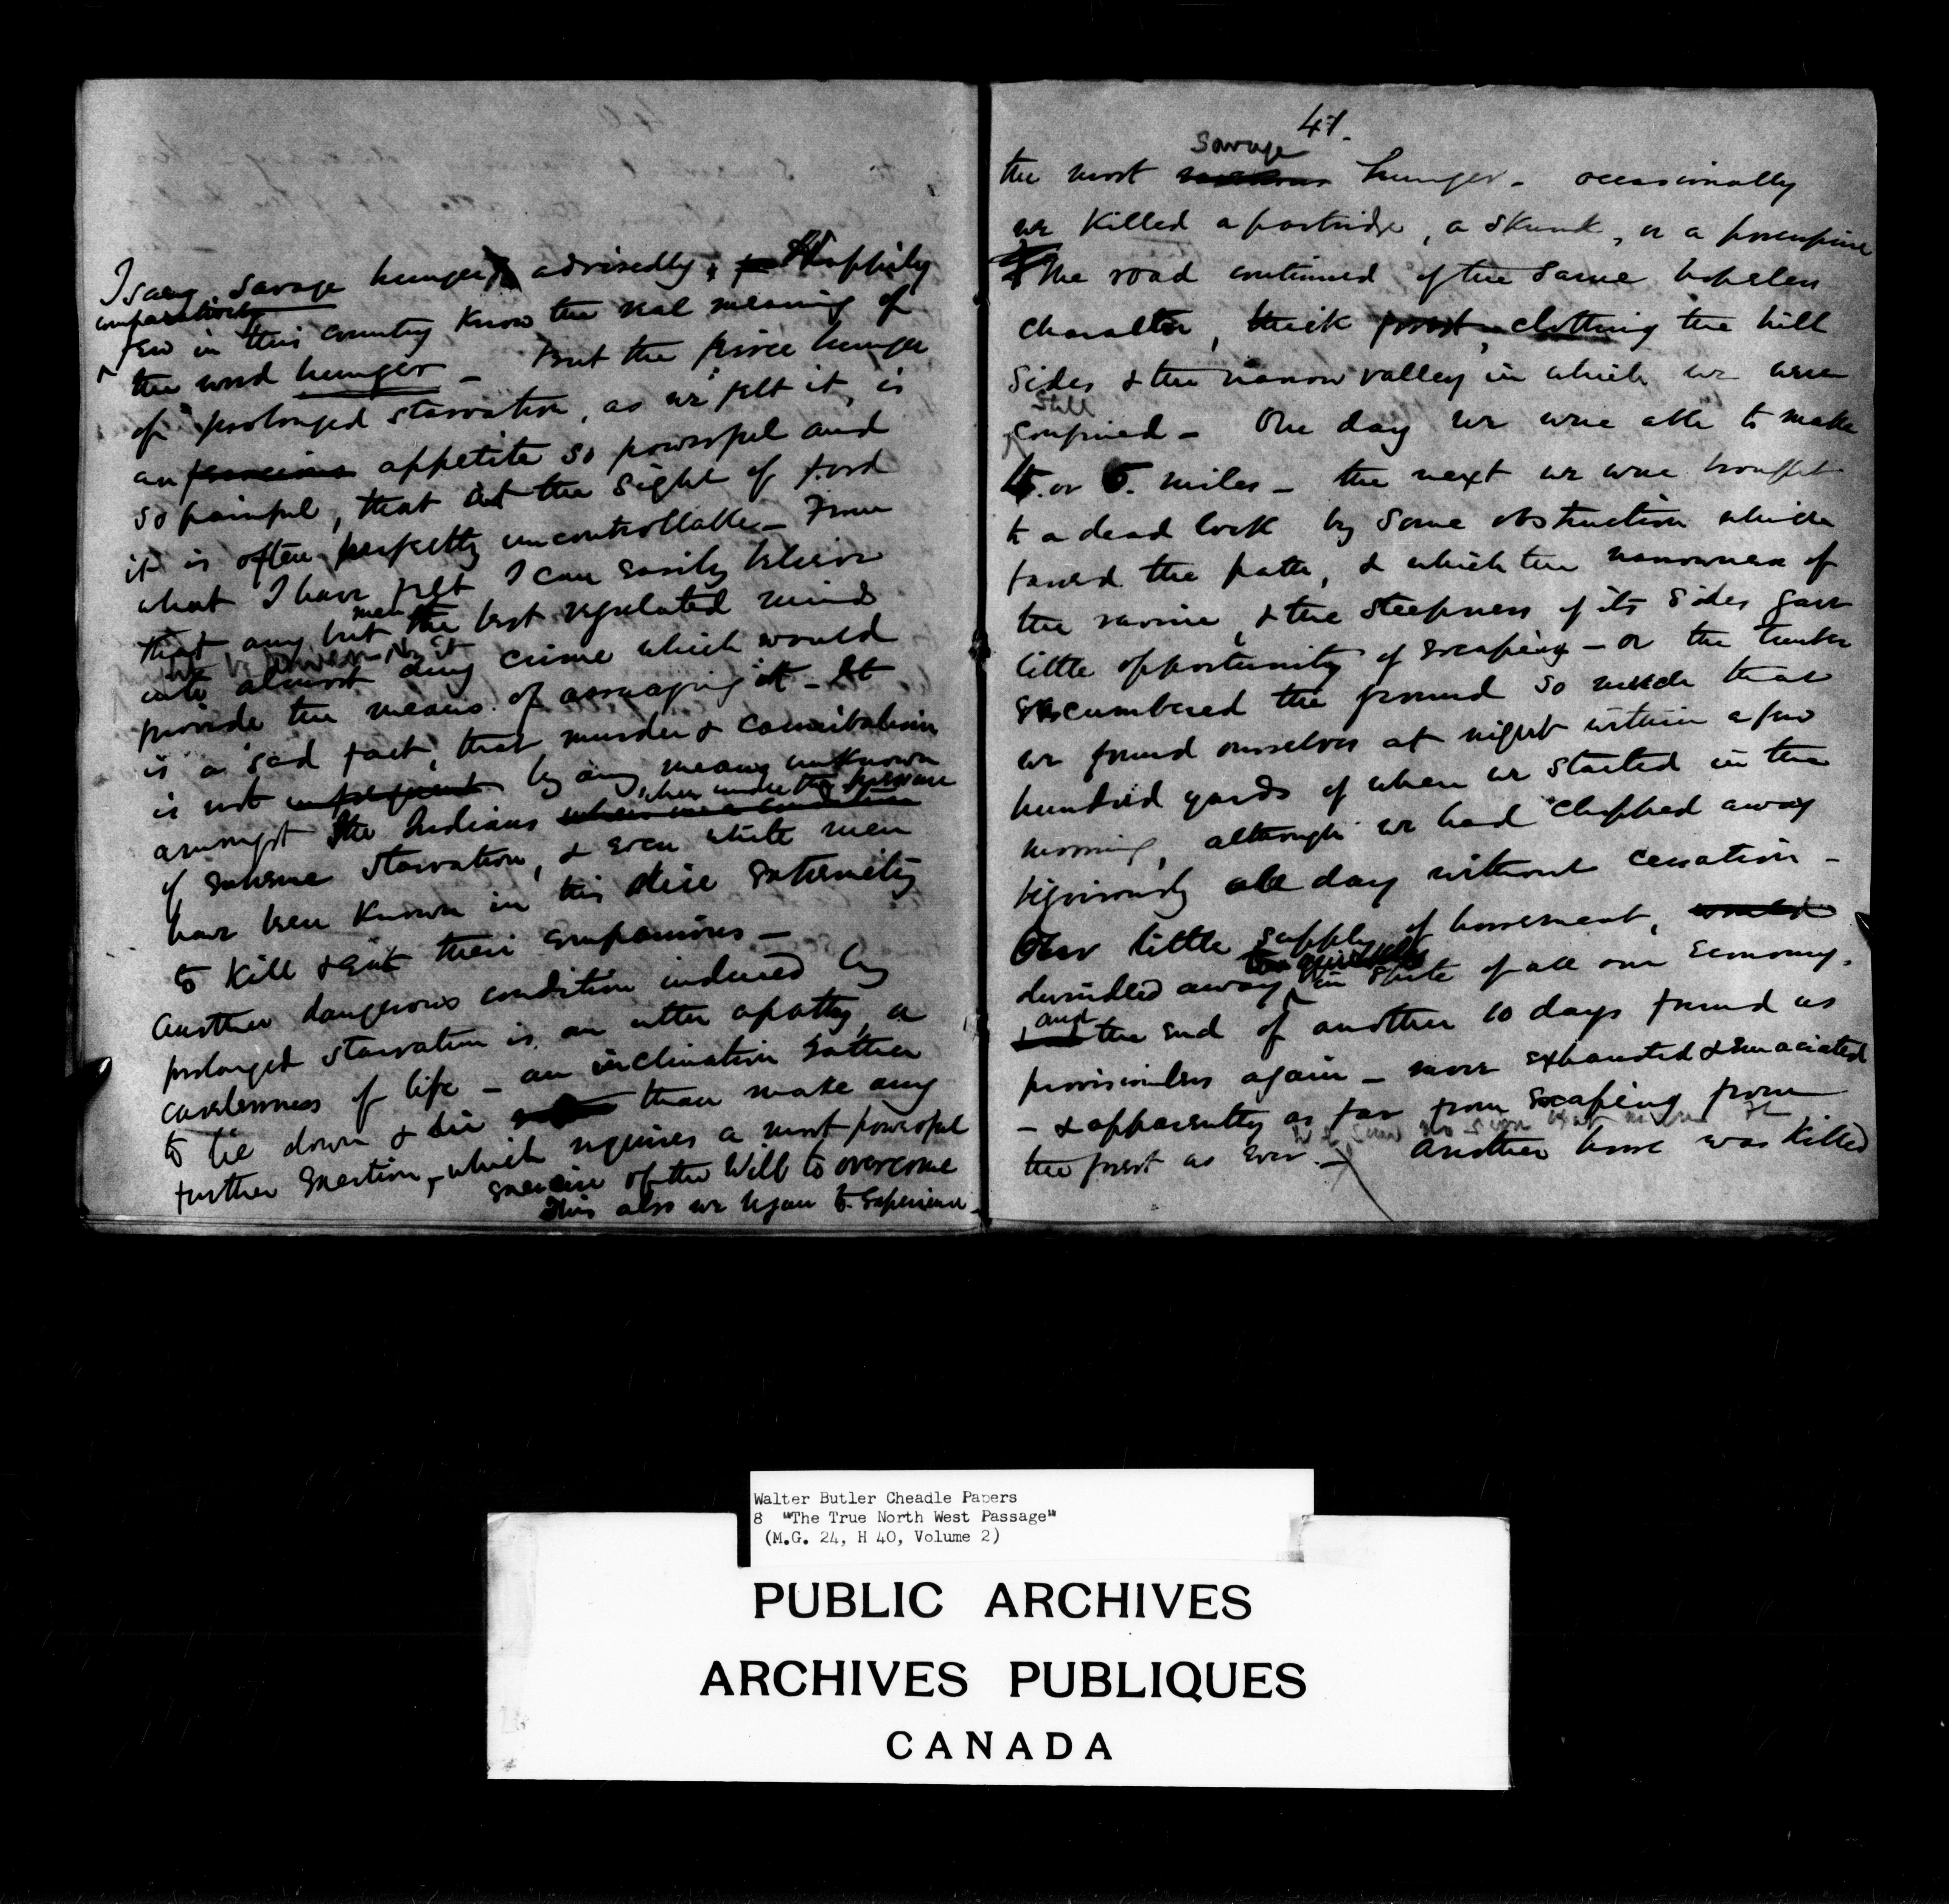 I say savage hunger advisedly, Happily
comparatively
few in this country know the real meaning of
the word hunger - But the fierce hunger
of prolonged starvation, as we felt it, is
an ferocious appetite so powerful and
so painful, that at the sight of food
it is often perfectly uncontrollable - From
what I have felt I can easily believe
that any but the best regulated mind
men
into almost any crime which would
provide the means of assuaging it - It
is a sad fact, that murder & cannibalism
is not infrequent by any means unknown
when under the pressure
amongst the Indians
of extreme starvation, & even white men
have been known in this dire extremity
to kill & eat their companions -
Another dangerous condition induced by
prolonged starvation is an utter apathy, a
carelessness of life - an inclination rather
to lie down & die than make any
further exertion, which requires a most powerful
exercise of the Will to overcome
This also we began to experience.
41.
savage
the most hunger - occasionally
we killed a partridge, a skunk, or a porcupine
The road continued of the same hopeless
character, thick forest, clothing the hill
sides & the narrow valley in which we were
still
confined - One day we were able to make
4. or 5. miles - the next we were brought
to a dead lock by some obstruction which
barred the path, & which the narrowness of
the ravine, & the steepness of its sides gave
little opportunity of escaping - or the timber
encumbered the ground so much that
we found ourselves at night within a few
hundred yards of where we started in the
morning, although we had chopped away
vigorously all day without cessation -
Our little supply of horsemeat, would
dwindled away in spite of all our economy.
and
the end of another 10 days found us
provisionless again - more exhausted & emaciated
- & apparently as far from escaping from
the forest as ever - Another horse was killed
Walter Butler Cheadle Papers
8 "The True North West Passage"
(M.G. 24, H 40, Volume 2)
PUBLIC ARCHIVES
ARCHIVES PUBLIQUES
CANADA